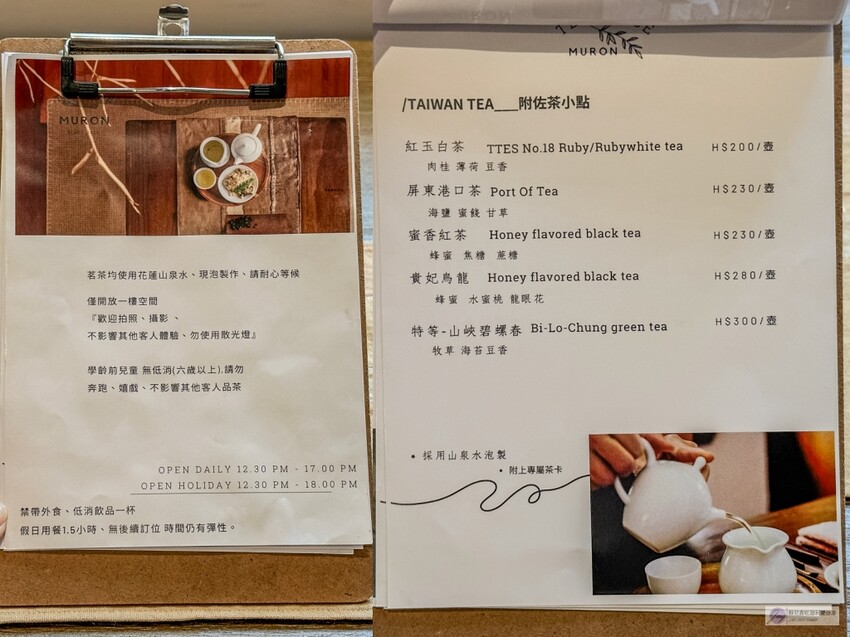 MURON
茗茶均使用花蓮山泉水、現泡製作、請耐心等候
僅開放一樓空間
『歡迎拍照、攝影 、
不影響其他客人體驗、勿使用散光燈』
學齡前兒童 無低消(六歲以上),請勿
奔跑、嬉戲、不影響其他客人品茶
OPEN DAILY 12.30 PM - 17.00 PM
OPEN HOLIDAY 12.30 PM - 18.00 PM
禁帶外食、低消飲品一杯
假日用餐1.5小時、無後續訂位 時間仍有彈性。
MURON
/TAIWAN TEA___附佐茶小點
紅玉白茶 TTES No.18 Ruby/Rubywhite tea H$200/壺
肉桂 薄荷 豆香
屏東港口茶 Port Of Tea H$230/壺
海鹽 蜜餞 甘草
蜜香紅茶 Honey flavored black tea H$230/壺
蜂蜜 焦糖 蔗糖
貴妃烏龍 Honey flavored black tea H$280/壺
蜂蜜 水蜜桃 龍眼花
特等-山峽碧螺春 Bi-Lo-Chung green tea H$300/壺
牧草 海苔豆香
• 採用山泉水泡製
• 附上專屬茶卡